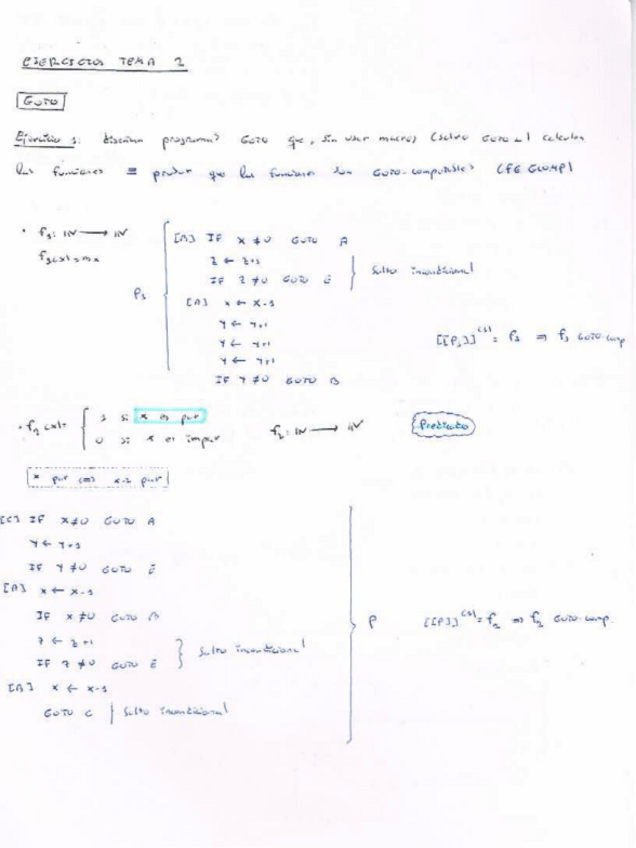 EJERCICIOS TEMA 2
GOTO
Ejercicio 1: programas GOTO que, sin usar macros (salvo GOTO L) calculen
las funciones ≡ probar que las funciones son GOTO-computables (f ∈ GCOMP)
· f₁: ℕ → ℕ
f₁(x) = 3x
P₁
[B] IF X ≠ 0 GOTO A
Z ← Z+1
IF Z ≠ 0 GOTO E
Salto incondicional
[A] X ← X-1
Y ← Y+1
Y ← Y+1
Y ← Y+1
IF Y ≠ 0 GOTO B
[[P₁]]⁽¹⁾ = f₁ ⇒ f₁ GOTO-comp
· f₂(x) = { 1 si x es par
0 si x es impar
f₂: ℕ → ℕ
Predicado
x par ⇔ x-2 par
[C] IF X ≠ 0 GOTO A
Y ← Y+1
IF Y ≠ 0 GOTO E
[A] X ← X-1
IF X ≠ 0 GOTO B
Z ← Z+1
IF Z ≠ 0 GOTO E
Salto incondicional
[B] X ← X-1
GOTO C | Salto incondicional
P
[[P]]⁽¹⁾ = f₂ ⇒ f₂ GOTO-comp.